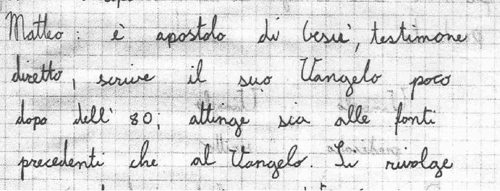 Matteo: è apostolo di Gesù, testimone
diretto, scrive il suo Vangelo poco
dopo dell' 80; attinge sia alle fonti
precedenti che al Vangelo. Si rivolge